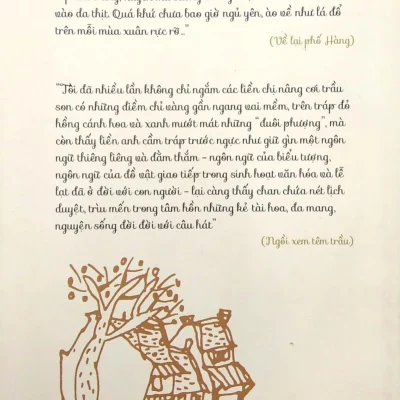 vào da thịt. Quá khứ chưa bao giờ ngủ yên, ào về như lá đổ
trên mỗi mùa xuân rực rỡ..."
(Về lại phố Hàng)
"Tôi đã nhiều lần không chỉ ngắm các liền chị nâng cơi trầu
son có những điểm chỉ vàng gần ngang vai mềm, trên tráp đỏ
hồng cánh hoa và xanh mướt mát những "đuôi phượng", mà
còn thấy liền anh cầm tráp trước ngực như giữ gìn một ngôn
ngữ thiêng liêng và đằm thắm - ngôn ngữ của biểu tượng,
ngôn ngữ của đồ vật giao tiếp trong sinh hoạt văn hóa và lễ
lạt đã ở đời với con người - lại càng thấy chan chứa nét lịch
duyệt, trìu mến trong tâm hồn những kẻ tài hoa, đa mang,
nguyện sống đời đời với câu hát"
(Ngồi xem têm trầu)